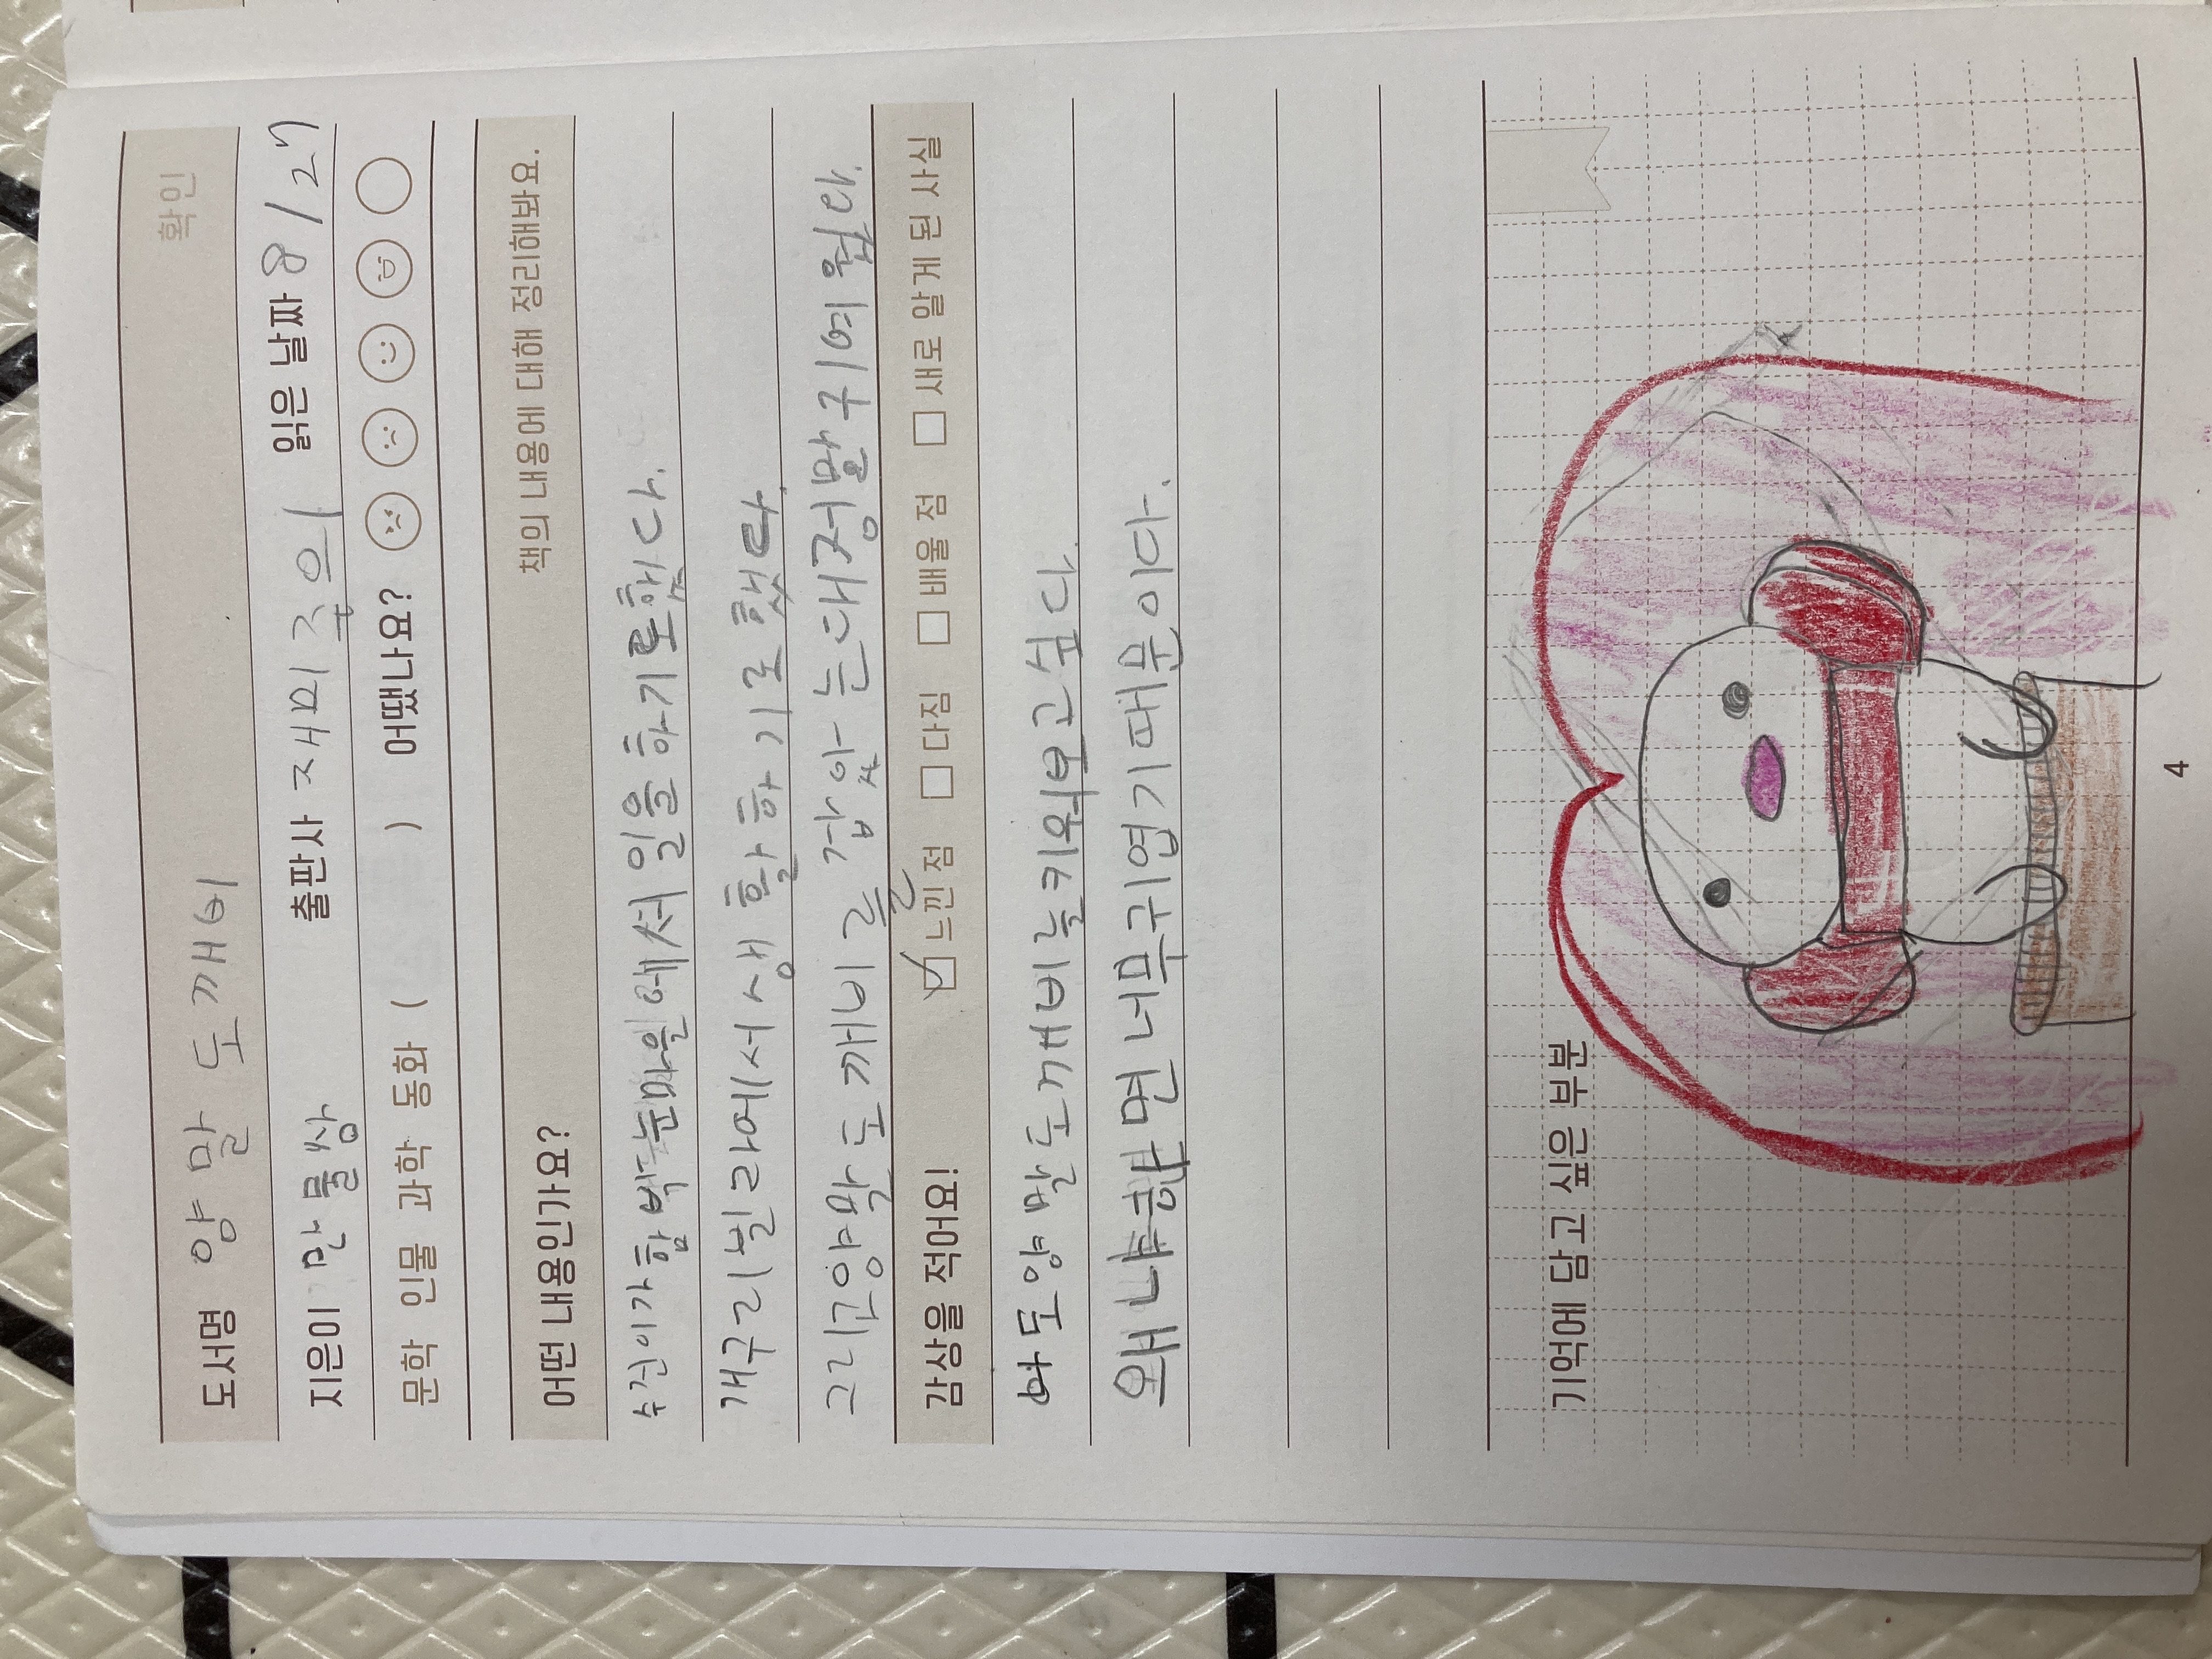 확인
도서명 양말 도깨비
지은이 만물상 출판사 재미주의 읽은 날짜 8/27
문학 인물 과학 동화 ( ) 어땠나요?
어떤 내용인가요? 책의 내용에 대해 정리해봐요.
수진이가 함박눈마을에서 일을 하기로했다.
개구리빌라에서 생활하기로했다.
그리고양말도깨비를 잡았는대정말귀여웠다.
감상을 적어요! 느낀 점 다짐 배울 점 새로 알게 된 사실
나도양말도깨비를키워보고싶다.
왜냐하면 너무귀엽기때문이다.
기억에 담고 싶은 부분
4